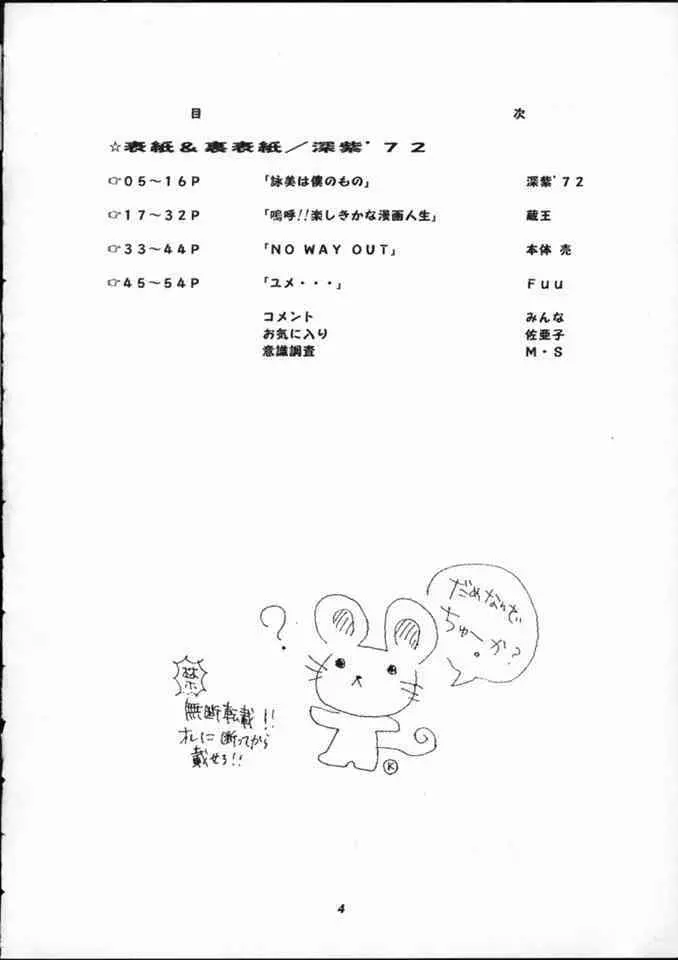 目 次
☆表紙&裏表紙／深紫'７２
☞０５～１６Ｐ 「詠美は僕のもの」 深紫'７２
☞１７～３２Ｐ 「嗚呼!!楽しきかな漫画人生」 蔵王
☞３３～４４Ｐ 「ＮＯ ＷＡＹ ＯＵＴ」 本体 売
☞４５～５４Ｐ 「ユメ・・・」 Ｆｕｕ
コメント みんな
お気に入り 佐亜子
意識調査 Ｍ・Ｓ
だめなりで
ちゅーか?
?
禁
無断転載!!
オレに断ってから
載せろ!!
K
4